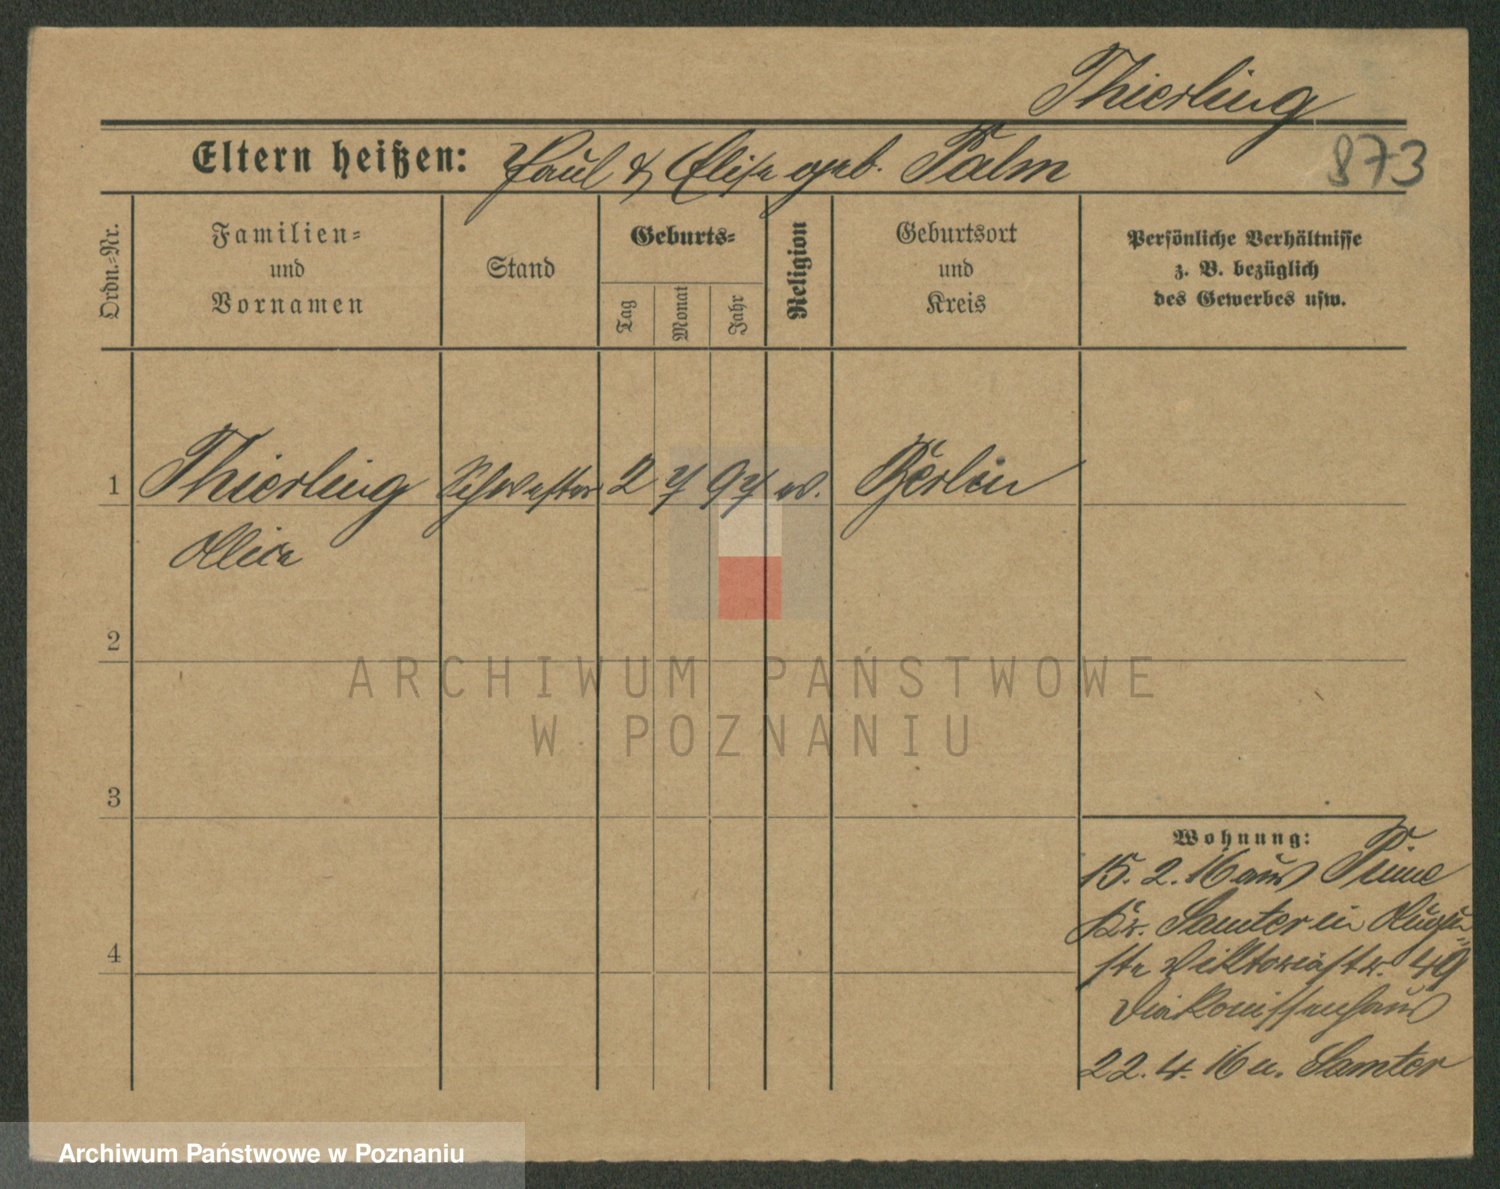 Thierling
Eltern heißen: Paul & Elise geb. Palm
873
Ordn.=Nr.
Familien=
und
Vornamen
Stand
Geburts=
Tag
Monat
Jahr
Religion
Geburtsort
und
Kreis
Persönliche Verhältnisse
z. B. bezüglich
des Gewerbes usw.
1 Thierling Schwester 2 7 97 ev. Berlin
Alice
2
3
4
Wohnung:
15. 2. 16 aus Pinne
Kr. Samter in Augu=
ste Viktoriastr. 49
Diakonissenhaus
22. 4. 16 n. Samter
ARCHIWUM PAŃSTWOWE
W POZNANIU
Archiwum Państwowe w Poznaniu